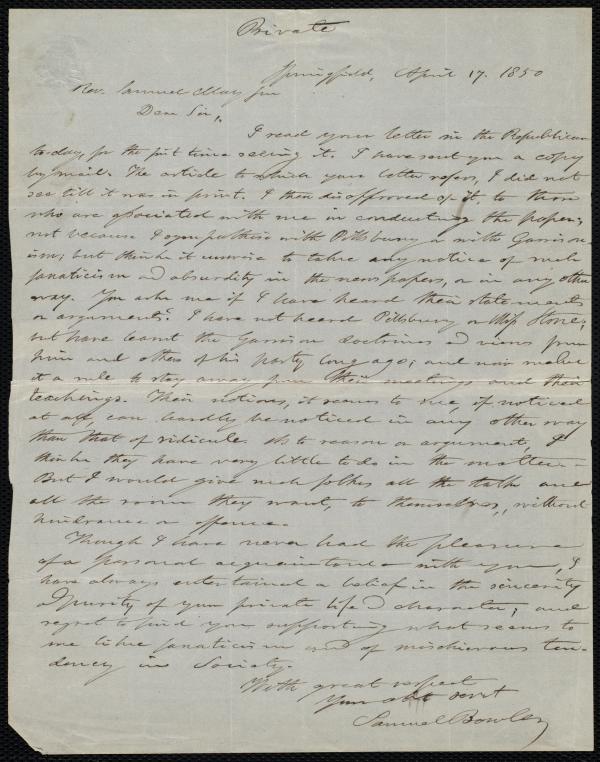 Private
Springfield, April 17. 1850
Rev. Samuel May Jun
Dear Sir,
I read your letter in the Republican
to-day, for the first time seeing it. I have sent you a copy
by mail. The article to which your letter refers, I did not
see till it was in print. I then disapproved of it, to those
who are associated with me in conducting the paper;
not because I sympathise with Pillsbury or with Garrison-
ism; but think it unwise to take any notice of such
fanaticism and absurdity in the newspapers, or in any other
way. You ask me if I have heard their statements
or arguments? I have not heard Pillsbury or Miss Stone;
but have learnt the Garrison doctrines and views from
him and others of his party long ago; and now make
it a rule to stay away from their meetings and their
teachings. Their notions, it seems to me, if noticed
at all, can hardly be noticed in any other way
than that of ridicule. As to reason or argument, I
think they have very little to do in the matter.—
But I would give such folks all the talk and
all the room they want, to themselves, without
hindrance or offence.
Though I have never had the pleasure
of a personal acquaintance with you, I
have always entertained a belief in the sincerity
& purity of your private life & character; and
regret to find you supporting what seems to
me like fanaticism and of mischievous ten-
dency in Society.
With great respect
Your obt servt
Samuel Bowles